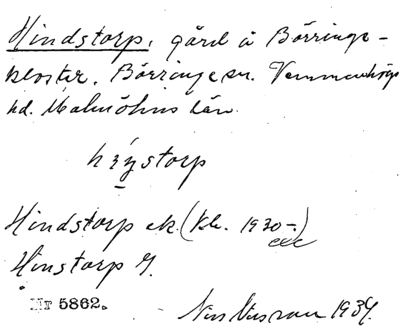 Hindstorp, gård å Börringe-
kloster, Börringe sn. Vemmenhögs
hd. Malmöhus län.
hinstorp
Hindstorp ek. (Kb. 1930-)
Hinstorp
Nr 5862.
1934.